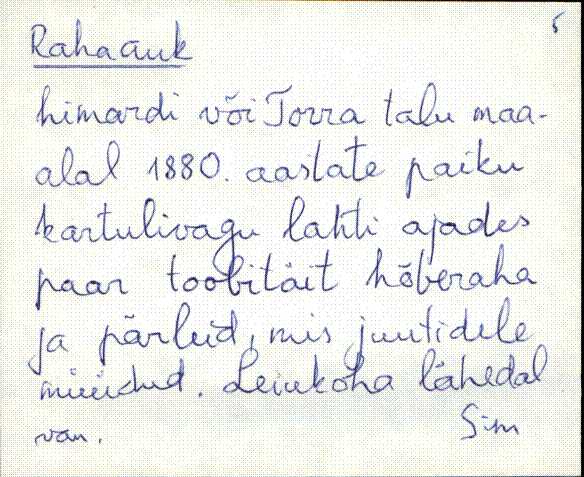 5
Raha auk
himardi või Torra talu maa-
alal 1880. aastate paiku
kartulivagu lahti ajades
paar toobitäit hõberaha
ja pärleid, mis juutidele
müüdud. Leiukoha lähedal
van.
Sim